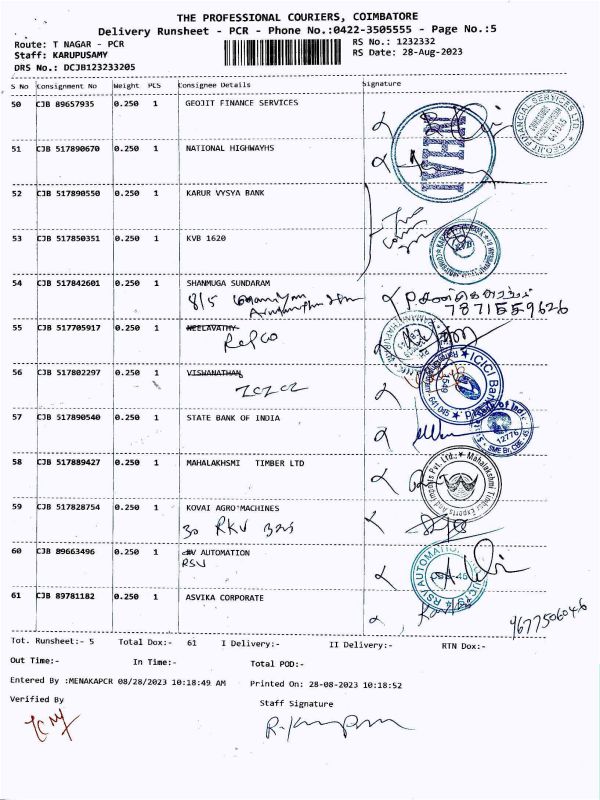 THE PROFESSIONAL COURIERS, COIMBATORE
Delivery Runsheet - PCR - Phone No.:0422-3505555 - Page No.:5
Route: T NAGAR - PCR
RS No.: 1232332
Staff: KARUPUSAMY
RS Date: 28-Aug-2023
DRS No.: DCJB123233205
S No Consignment No Weight PCS Consignee Details Signature
50 CJB 89657935 0.250 1 GEOJIT FINANCE SERVICES
GEOJIT FINANCIAL SERVICES LTD.
51 CJB 517890670 0.250 1 NATIONAL HIGHWAYHS
NHAI
52 CJB 517890550 0.250 1 KARUR VYSYA BANK
53 CJB 517850351 0.250 1 KVB 1620
54 CJB 517842601 0.250 1 SHANMUGA SUNDARAM
8/5
7871559626
55 CJB 517705917 0.250 1 NEELAVATHY
Repco
56 CJB 517802297 0.250 1 VISWANATHAN
ICICI
ICICI Bank
641 045
57 CJB 517890540 0.250 1 STATE BANK OF INDIA
12776
58 CJB 517889427 0.250 1 MAHALAKHSMI TIMBER LTD
Mahalakshmi Timber Exports And Imports Pvt. Ltd.,
59 CJB 517828754 0.250 1 KOVAI AGRO'MACHINES
RKV
60 CJB 89663496 0.250 1 AUTOMATION
RSV
RSV AUTOMATION
61 CJB 89781182 0.250 1 ASVIKA CORPORATE
9677506046
Tot. Runsheet:- 5 Total Dox:- 61 I Delivery:- II Delivery:- RTN Dox:-
Out Time:- In Time:- Total POD:-
Entered By :MENAKAPCR 08/28/2023 10:18:49 AM Printed On: 28-08-2023 10:18:52
Verified By
Staff Signature